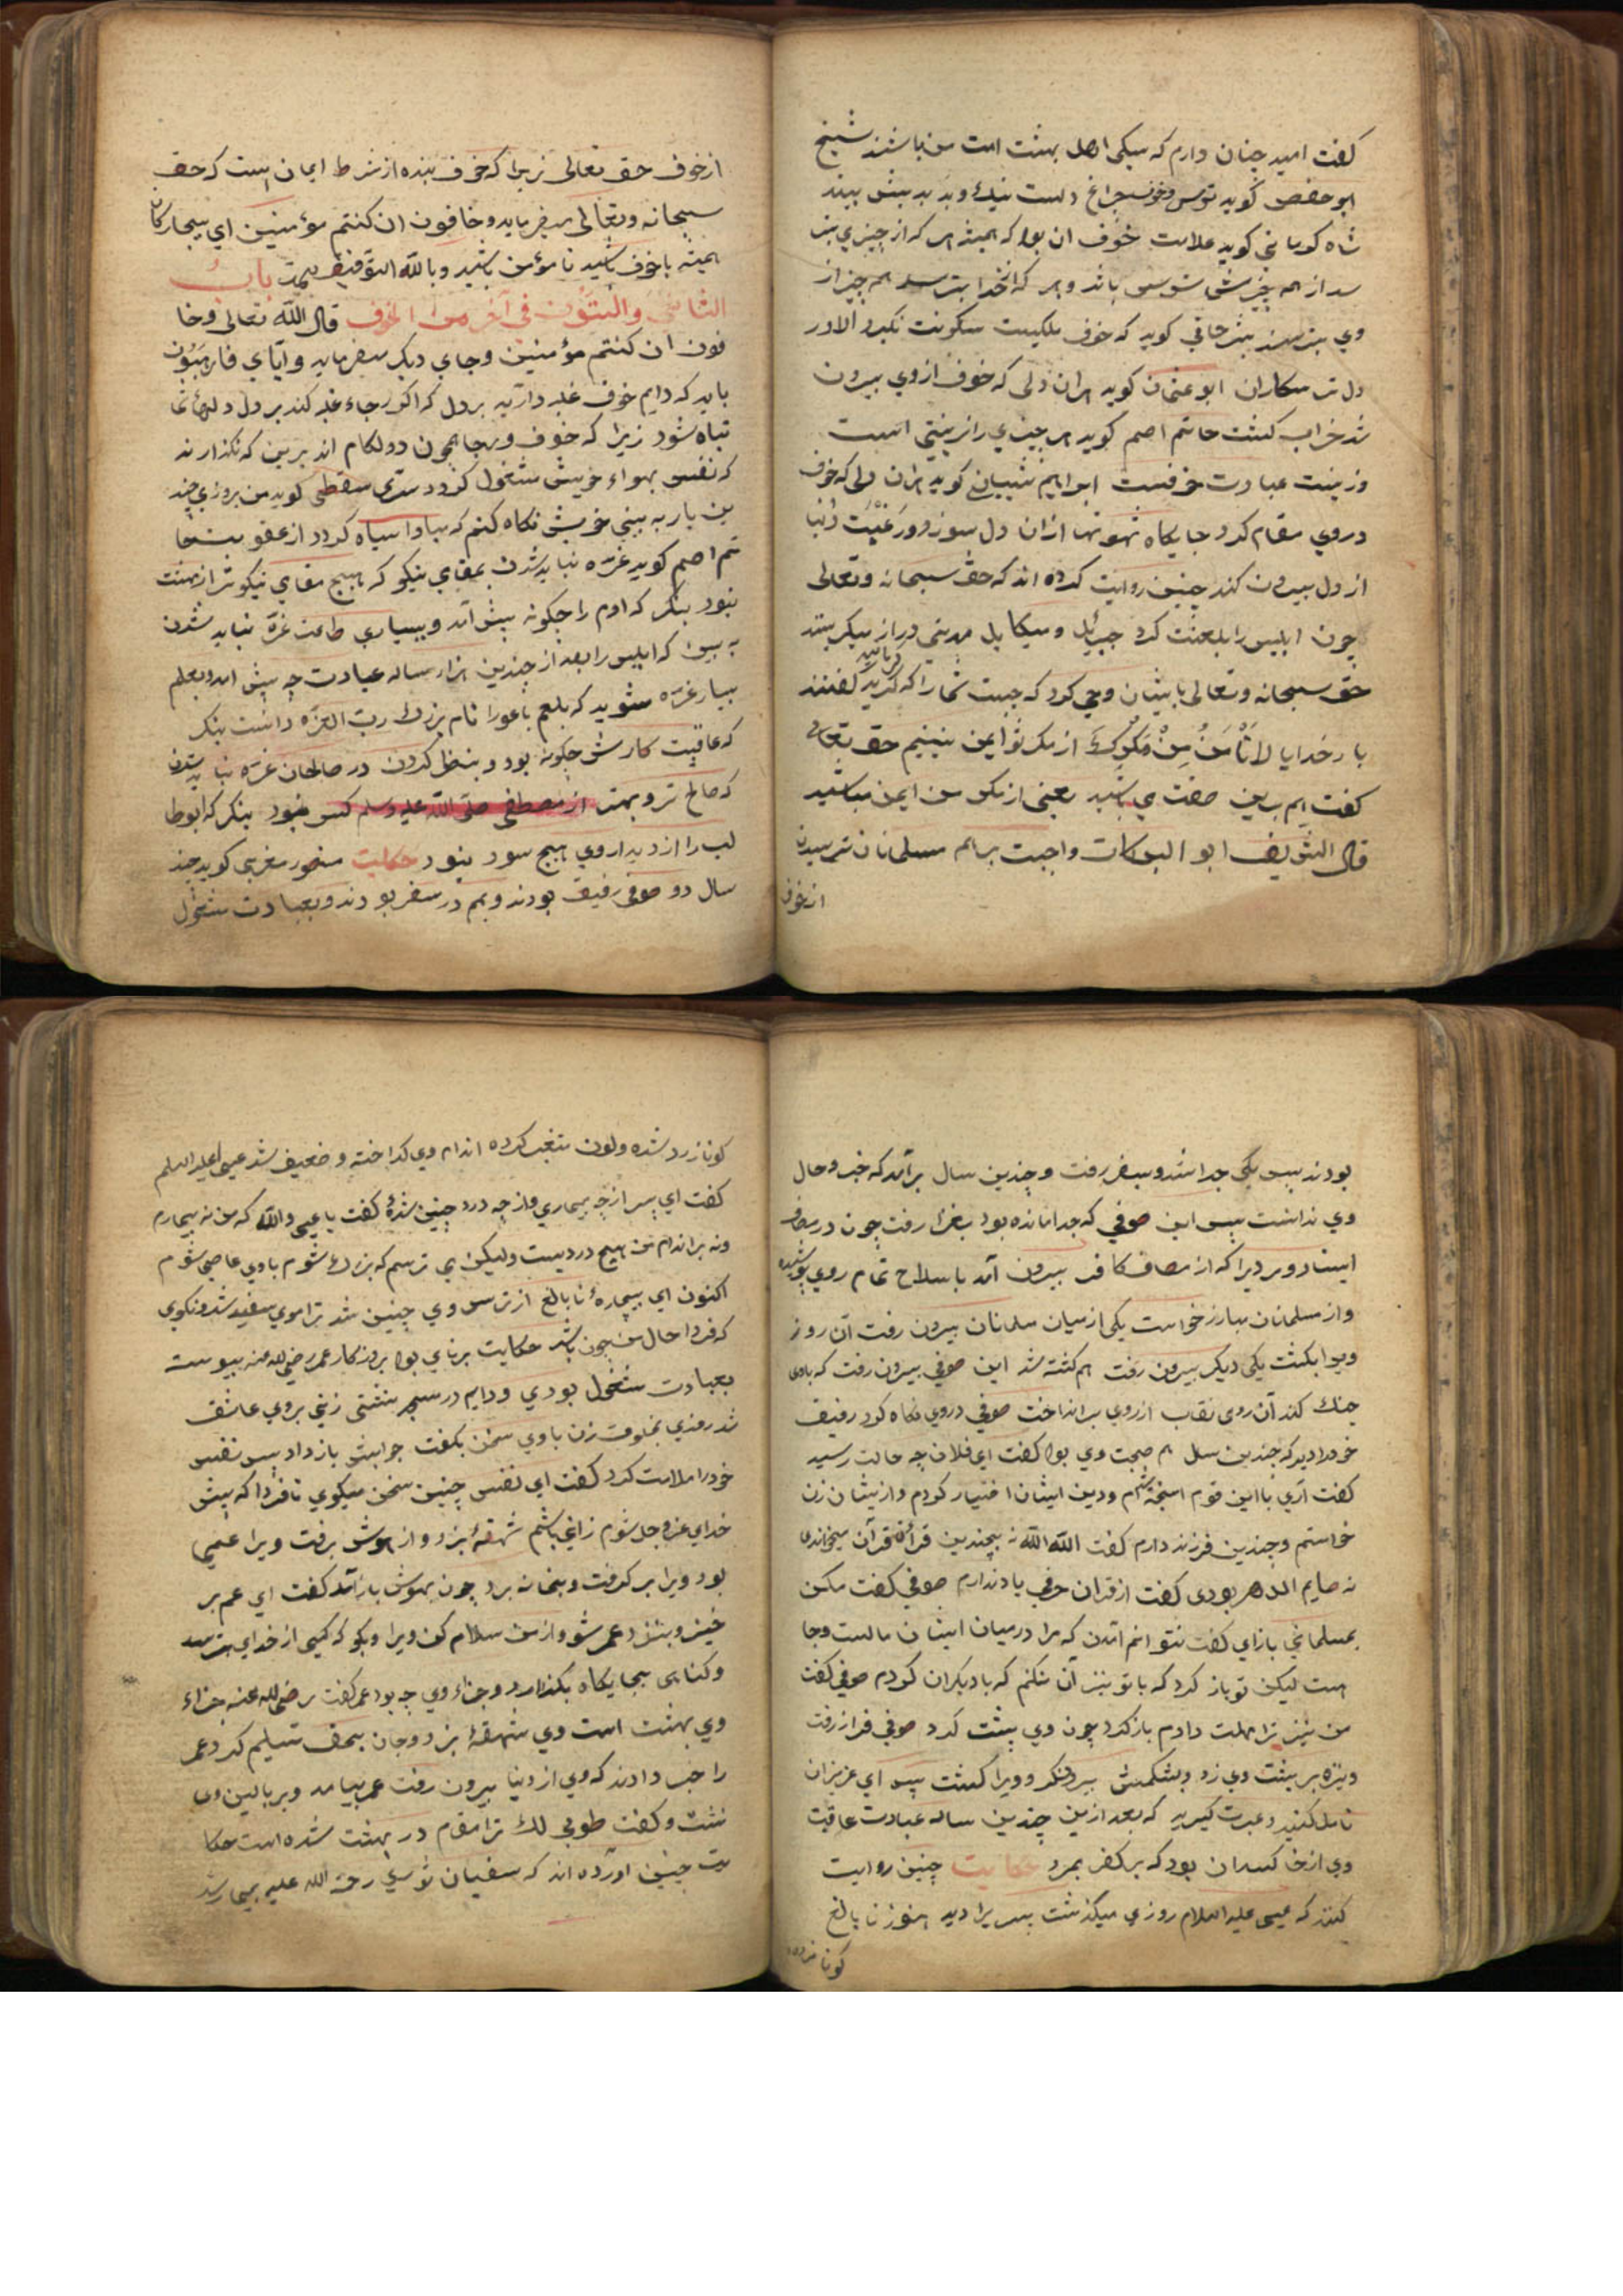 كفت اميد چنان دارم كه سيكى اهل بهشت امت من باشند شيخ
ابو حفص كويد ترس و خوف چراغ دلست نيك و بد بدبيش بيند
شاه كرمانى كويد علامت خوف ان بود كه هميشه هر كه از چيزي بتر
سد از همه چيزش ترس باشد و هر كه از خدا بترسد همه چيز از
وي بترسند بشر حافى كويد كه خوف ملكيست سكونت نكيرد الا در
دل ترسكاران ابو عثمان كويد هران دلى كه خوف از وي بيرون
شد خراب كشت حاتم اصم كويد هر چيزي را زينتى است
و زينت عبادت خوفست ابراهيم شيبان كويد هران دلى كه خوف
در وي مقام كرد جايكاه شهوتها ازان دل سوزد و رغبت دنيا
از دل بيرون كند چنين روايت كرده اند كه حق سبحانه وتعالى
چون ابليس را بلعنت كرد جبرئيل و ميكائيل مدتى دراز ميكريستند
حق سبحانه وتعالى بايشان وحى كرد كه چيست شمارا كه كريد كفتند
بار خدايا لا نأمن من مكرك از مكر تو ايمن نيينيم حق تعالى
كفت هم برين صفت مي باشيد يعنى از مكر من ايمن مباشيد
قال الشريف ابو البركات واجبست بر همه مسلمانان ترسيدن
از خوف
از خوف حق تعالى زيرا كه خوف بنده از شرط ايمان است كه حق
سبحانه وتعالى ميفرمايد وخافون ان كنتم مؤمنين اي بيچاركان
هميشه با خوف باشيد تا مؤمن باشيد وبالله التوفيق باب
الثاني والستون في آخر من الخوف قال الله تعالى وخا
فون ان كنتم مؤمنين وجاي ديكر ميفرمايد وايّاي فارهبون
بايد كه دايم خوف غلبه دارد بر دل كه اكر رجاء غلبه كند بر دل دلها
تباه شود زيرا كه خوف و رجا همچون دو لكام اند برين كه نكذارند
كه نفس بهواء خويش مشغول كردد سرّي سقطى كويد من بروزي چند
ين بار به بينى خويش نكاه كنم كه مبادا سياه كردد از عقوبت حا
تم اصم كويد غرّه نبايد شدن بمقامي نيكو كه هيچ مقامي نيكوتر از بهشت
نبود بنكر كه ادم را چكونه پيش آمد و ببسياري طاعت غرّه نبايد شدن
به بين كه ابليس را بعد از چندين هزار ساله عبادت چه پيش امد و بعلم
بسيار غرّه مشويد كه بلعم باعورا نام بزرك رب العزّه داشت بنكر
كه عاقبت كارش چكونه بود و بنظر كردن در صالحان غرّه نبايد شدن
كه صالح تر و بهتر از مصطفى صلى الله عليه وسلم كس نبود بنكر كه ابوطا
لب را از ديدار وي هيچ سود نبود حكايت منصور مغربى كويد چند
سال دو صوفى رفيق بودند و بهم در سفر بودند و بعبادت مشغول
بودند پس يكى جدا شد و بسفر رفت و چندين سال برآمد كه خبر و حال
وي نداشت پس اين صوفي كه جدا مانده بود بغزا رفت چون در مصاف
ايستاد مردي را كه از مصاف كافر بيرون آمد با سلاح تمام روي پوشيده
و از مسلمانان مبارز خواست يكى از ميان مسلمانان بيرون رفت آن روز
ويرا بكشت يكى ديكر بيرون رفت هم كشته شد اين صوفي بيرون رفت كه باوى
جنك كند آن روى نقاب از روي برانداخت صوفي در وي نكاه كرد رفيق
خود را ديد كه چندين سال هم صحبت وي بود كفت اي فلان چه حالت رسيد
كفت آري با اين قوم اميخته شدم و دين ايشان اختيار كردم و از يشان زن
خواستم و چندين فرزند دارم كفت الله الله نه بچندين قرائة قرآن ميخواندى
نه صايم الدهر بودى كفت از قران حرفي ياد ندارم صوفي كفت مكن
بمسلماني بازآي كفت نتوانم آمدن كه مرا در ميان ايشان مالست وجا
هست ليكن تو باز كرد كه با تو نيز آن نكنم كه با ديكران كردم صوفي كفت
من نيز ترا مهلت دادم باز كرد چون وي پشت كرد صوفي فراز رفت
و نيزه بر پشت وي زد و بشكمش بيرون كرد و ويرا كشت پس اي عزيزان
تامل كنيد و عبرت كيريد كه بعد ازين چندين ساله عبادت عاقبت
وي از خاكساران بود كه بر كفر بمرد حكايت چنين روايت
كنند كه عيسى عليه السلام روزي ميكذشت پسريرا ديد هنوز نابالغ
كونا زرده
كونا زرد شده و لون متغير كرده اندام وي كداخته و ضعيف شد عيسى عليه السلم
كفت اي پسر از چه بيماري و از چه درد چنين شدۀ كفت يا عيسى والله كه من نه بيمارم
و نه بر اندام من هيچ درديست وليكن مى ترسم كه بزرك شوم باوي عاصى شوم
اكنون اي بيچاره نابالغ از ترس وي چنين شد ترا موي سفيد شد و نكوى
كه فردا حال من چون باشد حكايت برناي بود بروزكار عمر رضى الله عنه پيوسته
بعبادت مشغول بودي و دايم در مسجد نشستى زنى بروي عاشق
شد روزي بخلوت زن باوي سخن بكفت جوابش باز داد پس نفس
خودرا ملامت كرد كفت اي نفس چنين سخن ميكوي تا فردا كه پيش
خداي عزوجل شوم زانى باشم شهقۀ بزد و از هوش برفت ويرا عمى
بود ويرا بر كرفت و بخانه برد چون بهوش بازآمد كفت اي عم بر
خيز و بنزد عمر شو و از من سلام كن ويرا و بكو كه كسى از خداي بترسد
و كناهى بجايكاه بكذارد و جزاء وي چه بود عمر كفت رضى الله عنه جزاء
وي بهشت است وي شهقۀ بزد و جان بحق تسليم كرد عمر
را خبر دادند كه وي از دنيا بيرون رفت عمر بيامد و بر بالين وى
نشست و كفت طوبى لك ترا مقام در بهشت شده است حكا
يت چنين آورده اند كه سفيان ثوري رحمة الله عليه بيمار شد